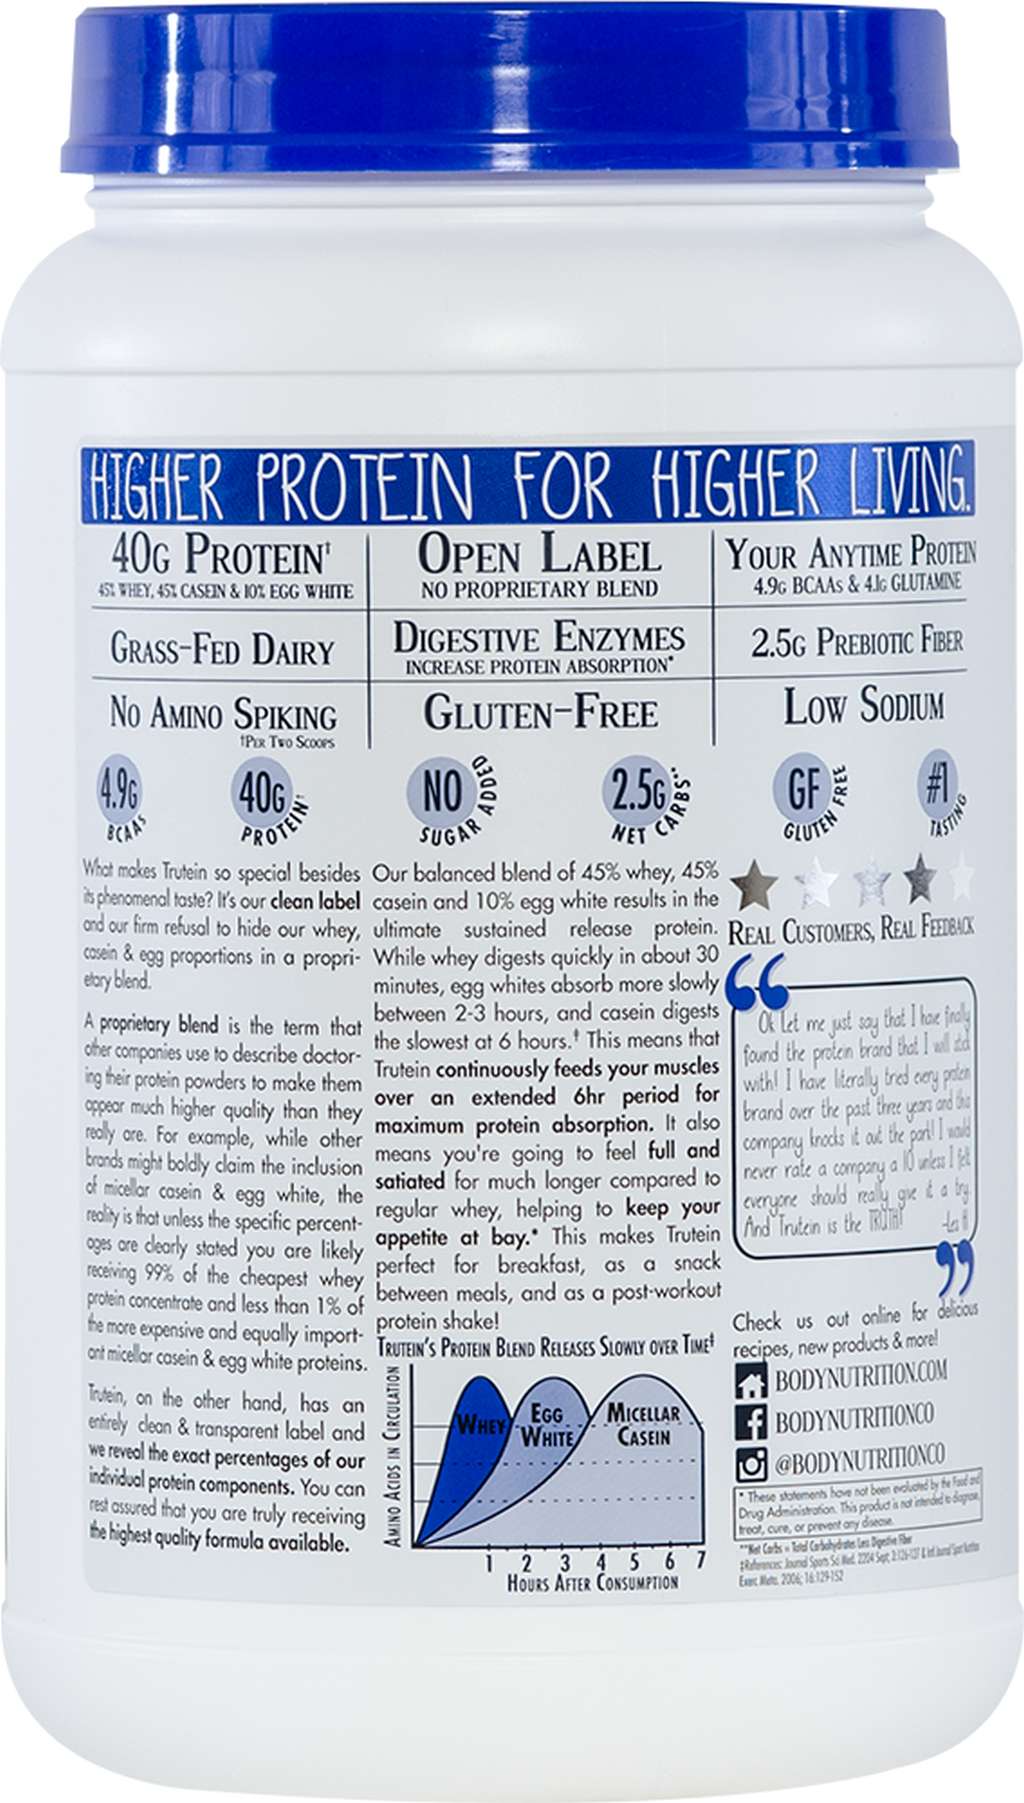 HIGHER PROTEIN FOR HIGHER LIVING.
40G PROTEIN†
45% WHEY, 45% CASEIN & 10% EGG WHITE
OPEN LABEL
NO PROPRIETARY BLEND
YOUR ANYTIME PROTEIN
4.9G BCAAS & 4.1G GLUTAMINE
GRASS-FED DAIRY
DIGESTIVE ENZYMES
INCREASE PROTEIN ABSORPTION*
2.5G PREBIOTIC FIBER
NO AMINO SPIKING
†PER TWO SCOOPS
GLUTEN-FREE
LOW SODIUM
4.9G
BCAAS
40G
PROTEIN†
NO
SUGAR ADDED
2.5G
NET CARBS**
GF
GLUTEN FREE
#1
TASTING
What makes Trutein so special besides
its phenomenal taste? It's our clean label
and our firm refusal to hide our whey,
casein & egg proportions in a propri-
etary blend.
A proprietary blend is the term that
other companies use to describe doctor-
ing their protein powders to make them
appear much higher quality than they
really are. For example, while other
brands might boldly claim the inclusion
of micellar casein & egg white, the
reality is that unless the specific percent-
ages are clearly stated you are likely
receiving 99% of the cheapest whey
protein concentrate and less than 1% of
the more expensive and equally import-
ant micellar casein & egg white proteins.
Trutein, on the other hand, has an
entirely clean & transparent label and
we reveal the exact percentages of our
individual protein components. You can
rest assured that you are truly receiving
the highest quality formula available.
Our balanced blend of 45% whey, 45%
casein and 10% egg white results in the
ultimate sustained release protein.
While whey digests quickly in about 30
minutes, egg whites absorb more slowly
between 2-3 hours, and casein digests
the slowest at 6 hours.‡ This means that
Trutein continuously feeds your muscles
over an extended 6hr period for
maximum protein absorption. It also
means you're going to feel full and
satiated for much longer compared to
regular whey, helping to keep your
appetite at bay.* This makes Trutein
perfect for breakfast, as a snack
between meals, and as a post-workout
protein shake!
TRUTEIN'S PROTEIN BLEND RELEASES SLOWLY OVER TIME‡
AMINO ACIDS IN CIRCULATION
WHEY
EGG
WHITE
MICELLAR
CASEIN
1 2 3 4 5 6 7
HOURS AFTER CONSUMPTION
REAL CUSTOMERS, REAL FEEDBACK
“
Ok Let me just say that I have finally
found the protein brand that I will stick
with! I have literally tried every protein
brand over the past three years and this
company knocks it out the park! I would
never rate a company a 10 unless I felt
everyone should really give it a try.
And Trutein is the TRUTH! -Les H
”
Check us out online for delicious
recipes, new products & more!
BODYNUTRITION.COM
BODYNUTRITIONCO
@BODYNUTRITIONCO
* These statements have not been evaluated by the Food and
Drug Administration. This product is not intended to diagnose,
treat, cure, or prevent any disease.
**Net Carbs = Total Carbohydrates Less Digestive Fiber
‡References: Journal Sports Sci Med. 2204 Sept; 3:126-137 & Intl Journal Sport Nutrition
Exerc Meta. 2006; 16:129-152